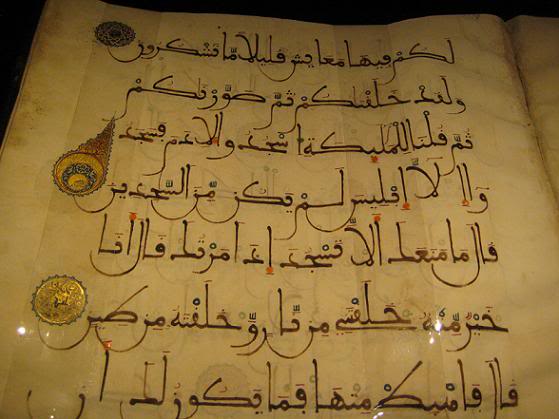 لَكُمْ فِيهَا مَعَايِشَ قَلِيلًا مَّا تَشْكُرُونَ
وَلَقَدْ خَلَقْنَٰكُمْ ثُمَّ صَوَّرْنَٰكُمْ
ثُمَّ قُلْنَا لِلْمَلَٰئِكَةِ اسْجُدُوا لِأَدَمَ فَسَجَدُ
وا إِلَّا إِبْلِيسَ لَمْ يَكُن مِّنَ السَّٰجِدِينَ
قَالَ مَا مَنَعَكَ أَلَّا تَسْجُدَ إِذْ أَمَرْتُكَ قَالَ أَنَا
خَيْرٌ مِّنْهُ خَلَقْتَنِي مِن نَّارٍ وَخَلَقْتَهُ مِن طِينٍ
قَالَ فَاهْبِطْ مِنْهَا فَمَا يَكُونُ لَكَ أَن